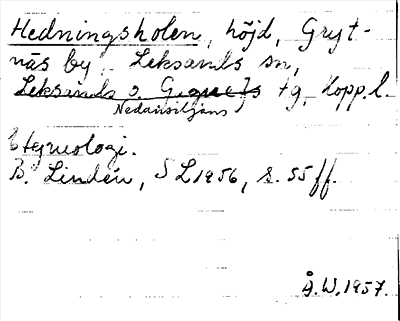 Hedningsholen, höjd, Gryt-
näs by, Leksands sn,
Leksands o. Gagnefs tg, Kopp.l.
Nedansiljans
Etymologi.
B. Lindén, SL 1956, s. 55 ff.
Å.W. 1957.